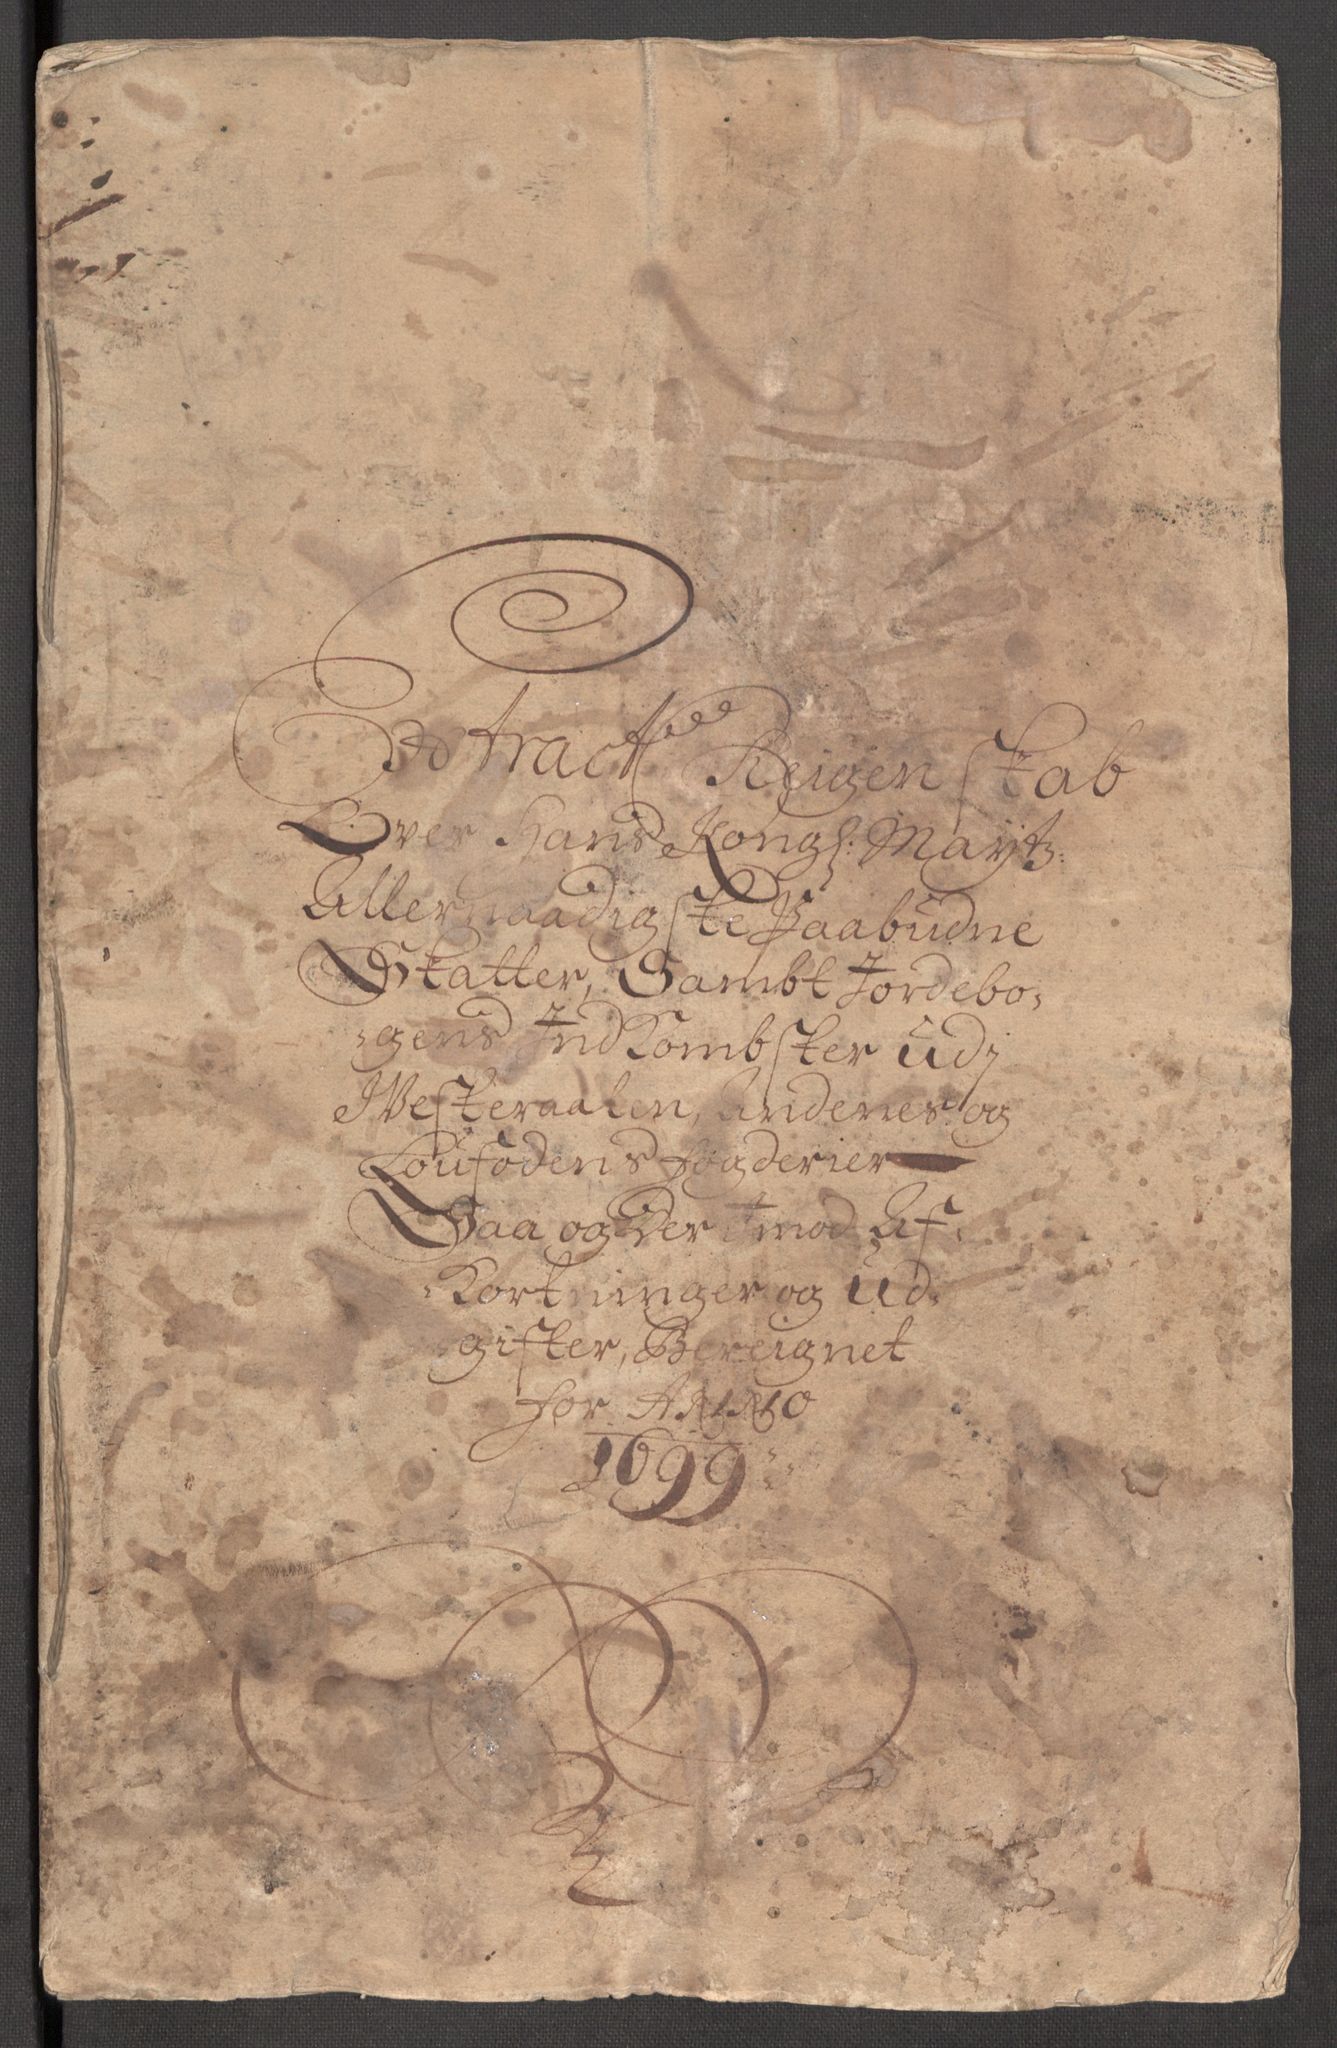 Extract Reigenskab
Over Hans Kongl: Mayts:
Allernaadigste Paabudne
Skatter, Sambt Jordebo-
-gens Indkombster udj
Westeraalen, Andenes og
Loufodens fogderier
Saa og Der Imod Af-
-Kortninger og Ud-
-gifter, Bereignet
for ANNO
1699